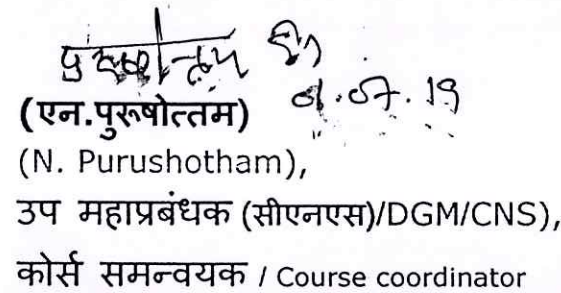 पुरुषोत्तम एन
.07.19
(एन.पुरूषोत्तम)
(N. Purushotham),
उप महाप्रबंधक (सीएनएस)/DGM/CNS),
कोर्स समन्वयक / Course coordinator